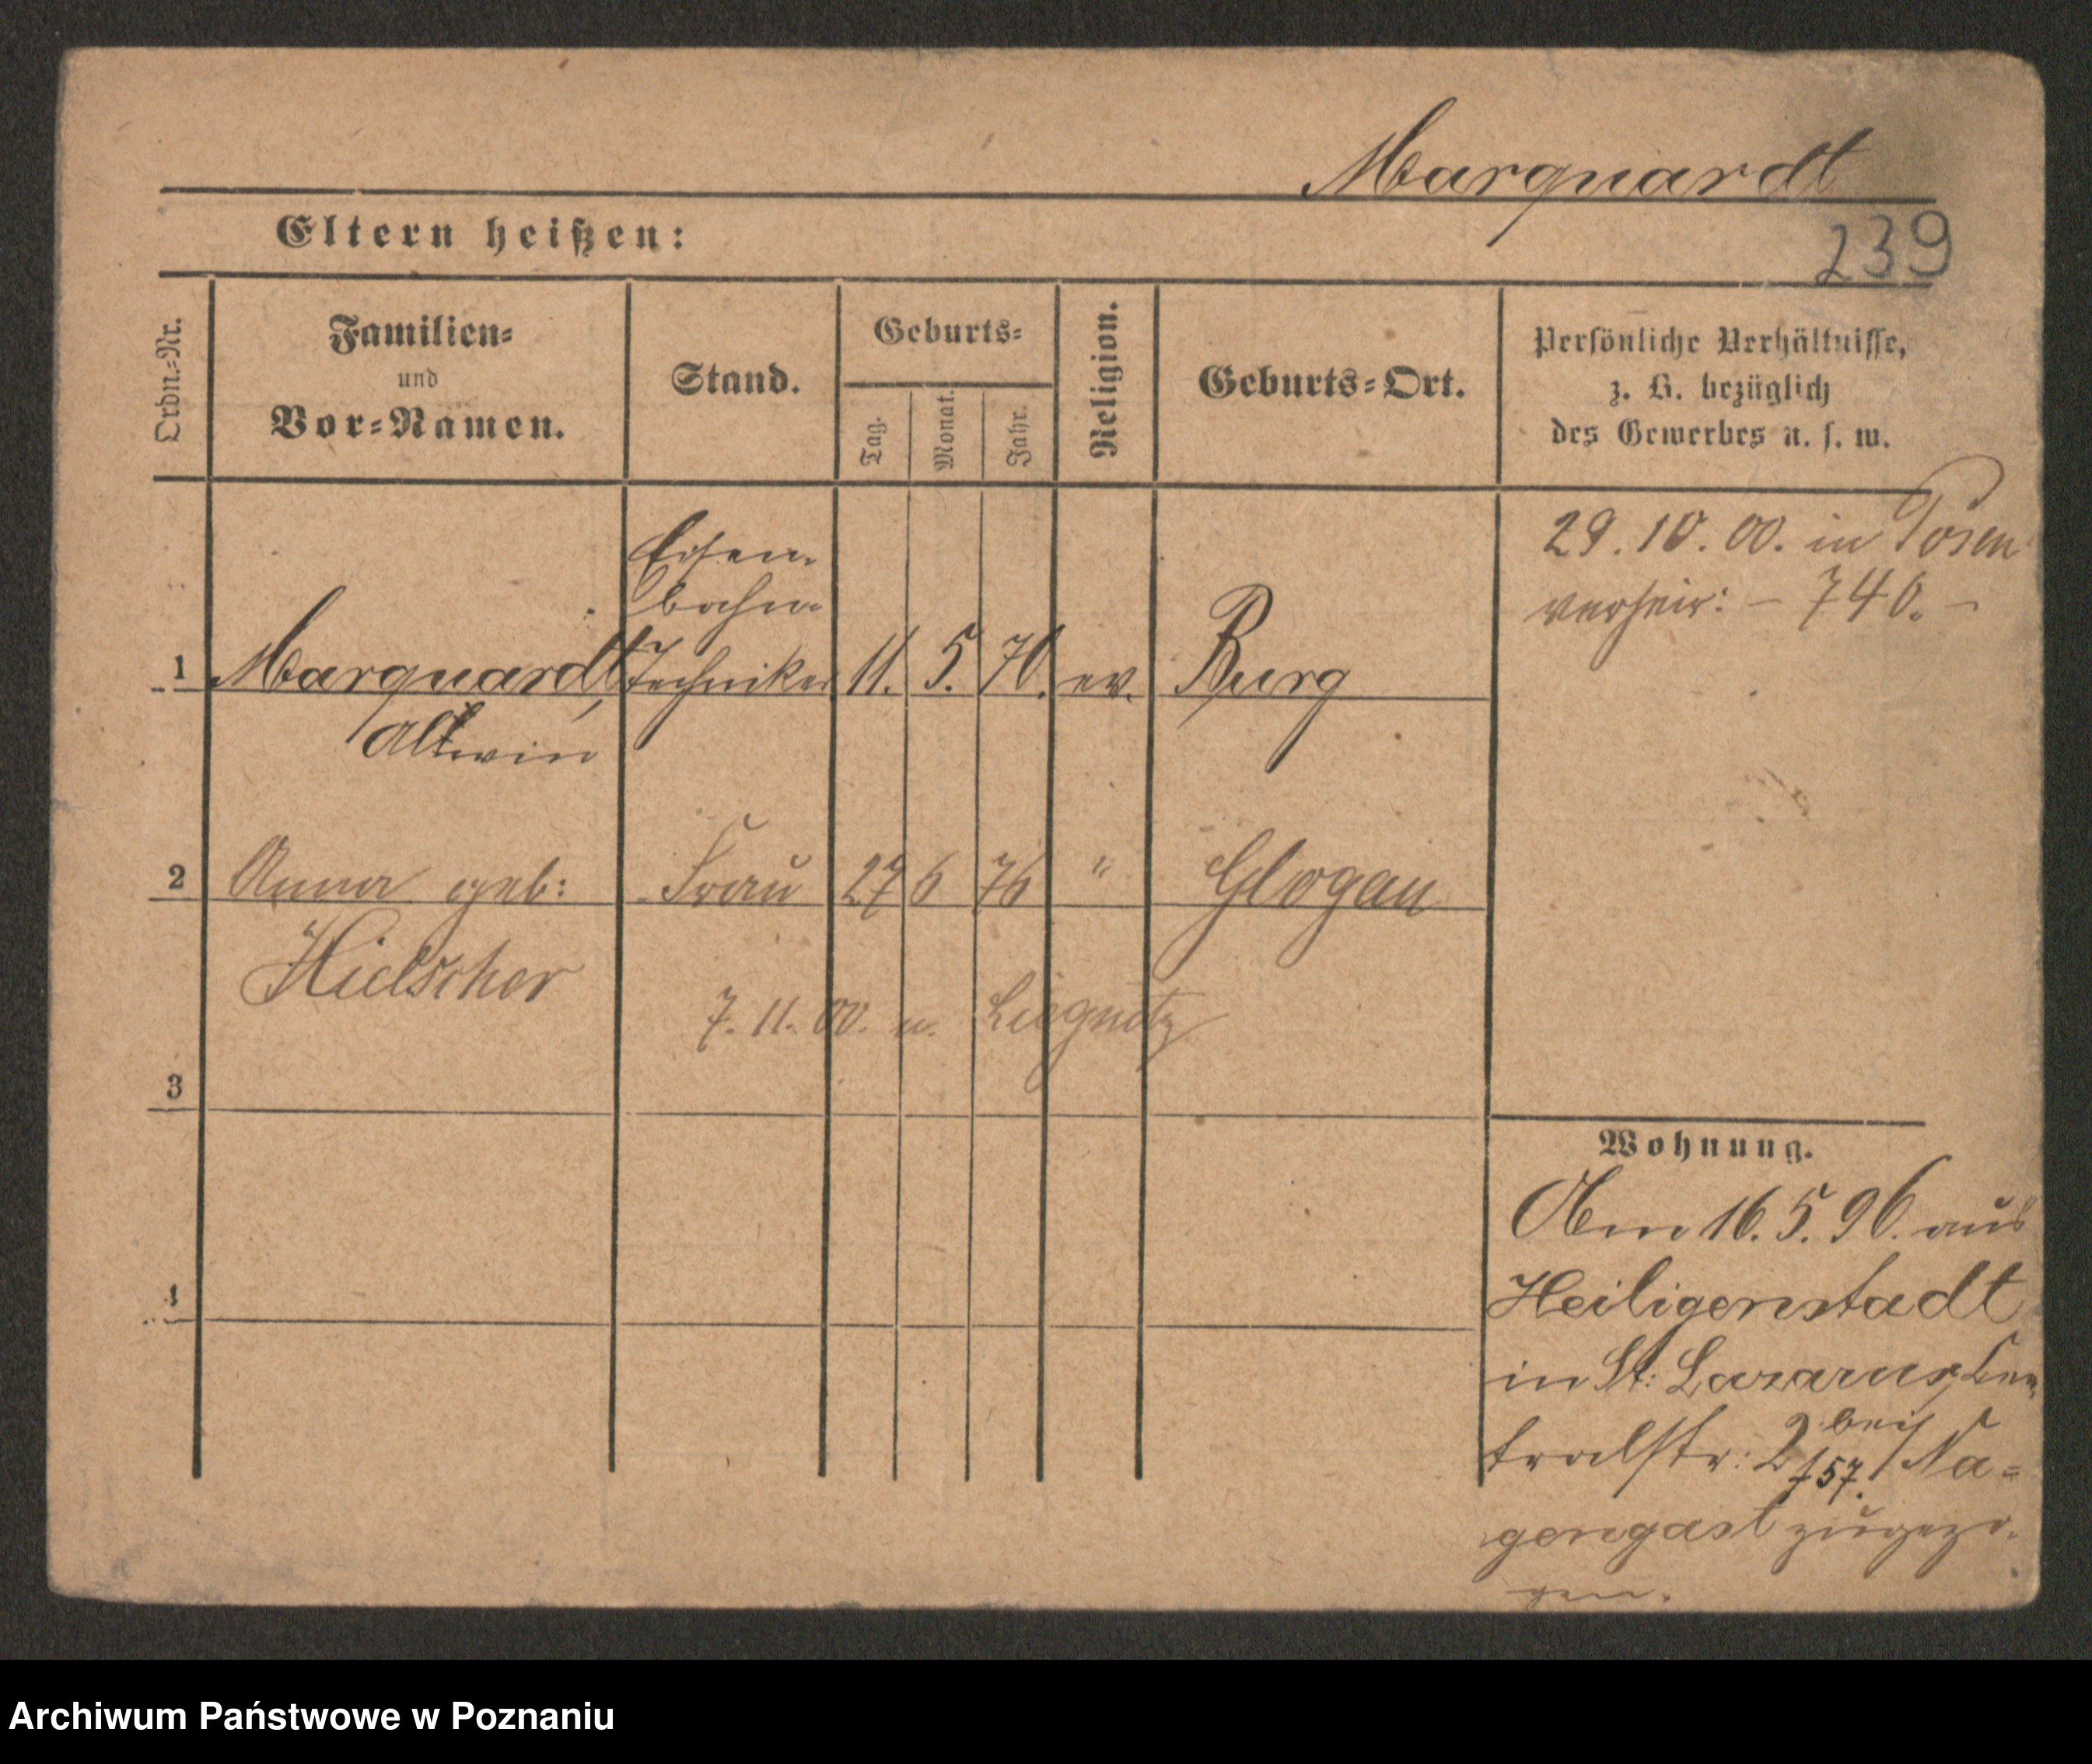 Marquardt
Eltern heißen:
239
Ordn.=Nr.
Familien=
und
Vor=Namen.
Stand.
Geburts=
Tag.
Monat.
Jahr.
Religion.
Geburts=Ort.
Persönliche Verhältnisse,
z. B. bezüglich
des Gewerbes u. s. w.
29.10.00. in Posen
verheir: – 740. –
Eisen
bahn
1 Marquardt, Techniker 11. 5. 70. ev. Burg
Alwin
2 Anna geb: Frau 27 6 76 " Glogau
Hielscher
7.11.00. n. Liegnitz
3
Wohnung.
4
Am 16.5.96. aus
Heiligenstadt
in St: Lazarus, Cen
tralstr: 2/57. bei Na=
gengast zugezo
gen.
Archiwum Państwowe w Poznaniu